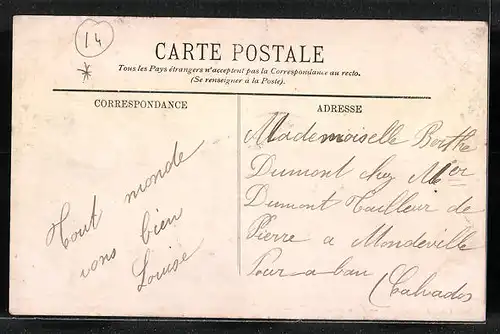 14
CARTE POSTALE
Tous les Pays étrangers n'acceptent pas la Correspondance au recto.
(Se renseigner à la Poste).
CORRESPONDANCE
Tout monde
vons bien
Louise
ADRESSE
Mademoiselle Berthe
Dumont chez Mer
Dumont Tailleur de
Pierre a Mondeville
Pour-a-bau
(Calvados